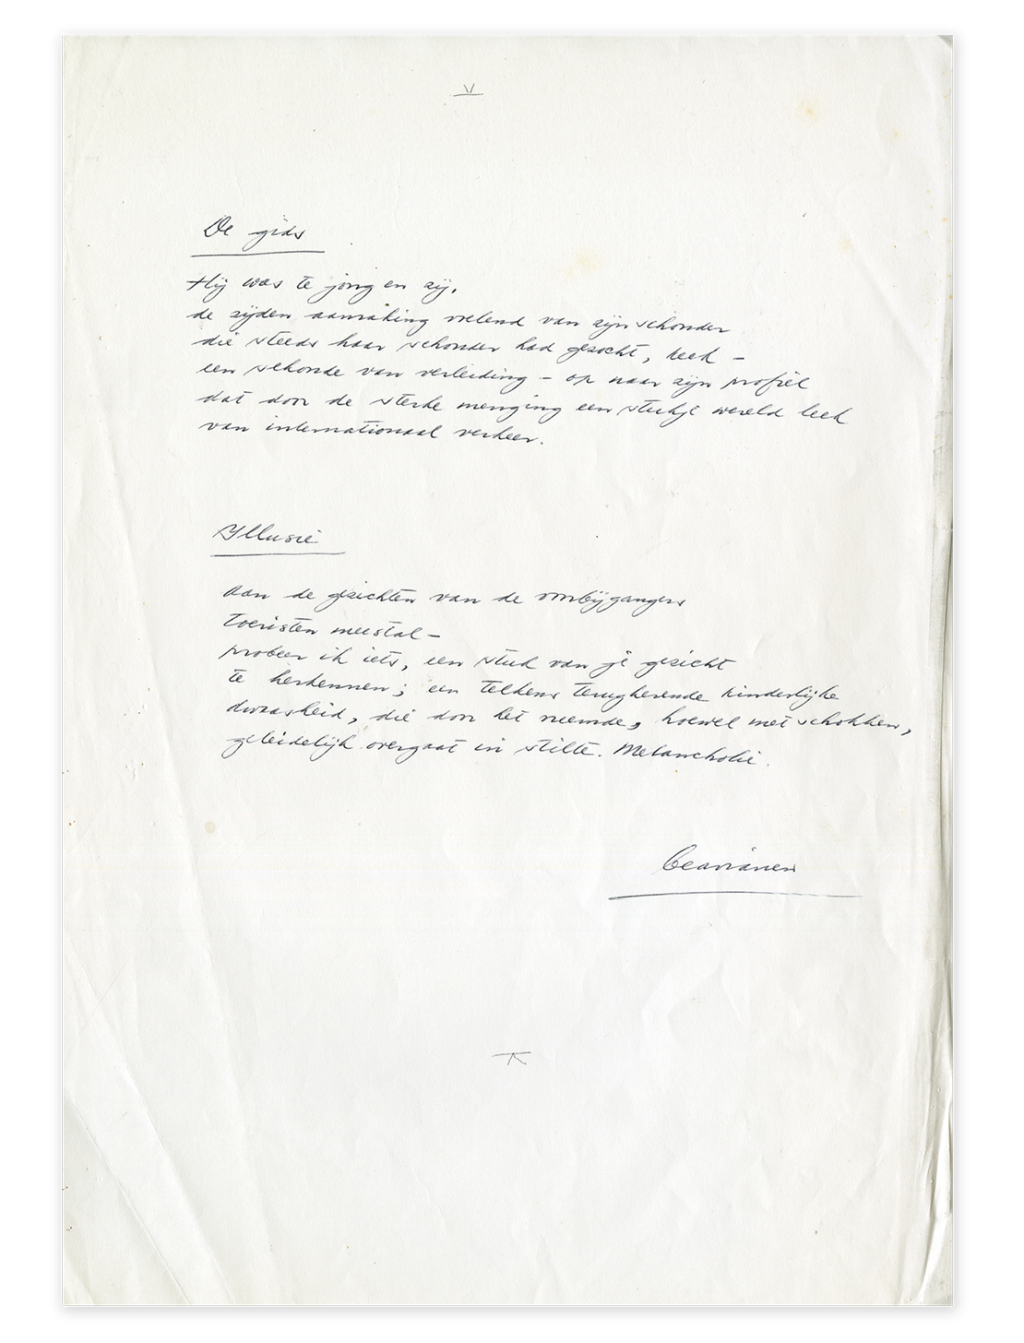 De gids
Hij was te jong en zij,
de zijden aanraking voelend van zijn schouder
die steeds haar schouder had gezocht, keek –
een schonde van verleiding – op naar zijn profiel
dat door de sterke menging een stukje wereld leek
van internationaal verkeer.
Illusie
Aan de gezichten van de voorbijgangers
toeristen meestal –
probeer ik iets, een stuk van je gezicht
te herkennen; een telkens terugkerende kinderlijke
dwaasheid, die door het vreemde, hoewel met schokken,
geleidelijk overgaat in stilte. Melancholie.